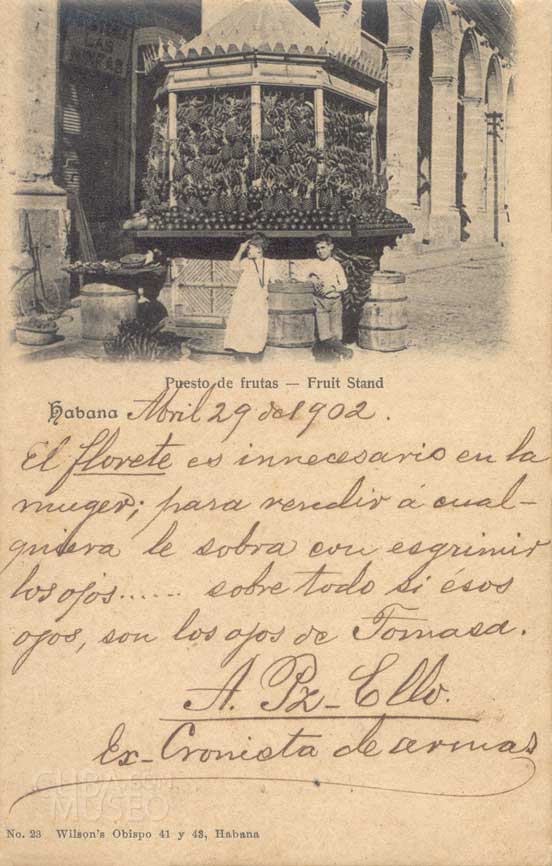 LAS
NINFAS
Puesto de frutas — Fruit Stand
Habana Abril 29 de 1902.
El florete es innecesario en la
muger; para rendir á cual-
quiera le sobra con esgrimir
los ojos...... sobre todo si ésos
ojos, son los ojos de Tomasa.
A. Pz-Ello.
Ex-Cronista de armas
CUBA EN EL
MUSEO
No. 23 Wilson's Obispo 41 y 43, Habana